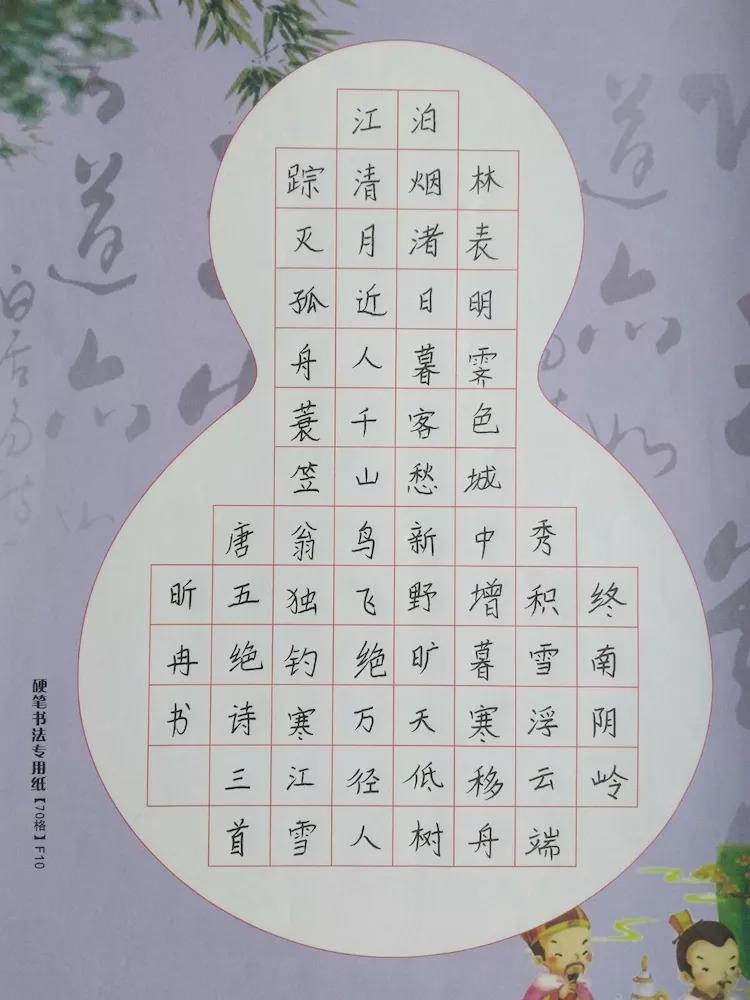 终南阴岭
秀积雪浮云端
林表明霁色城中增暮寒移舟
泊烟渚日暮客愁新野旷天低树
江清月近人千山鸟飞绝万径人
踪灭孤舟蓑笠翁独钓寒江雪
唐五绝诗三首
昕冉书
硬笔书法专用纸【70格】F10